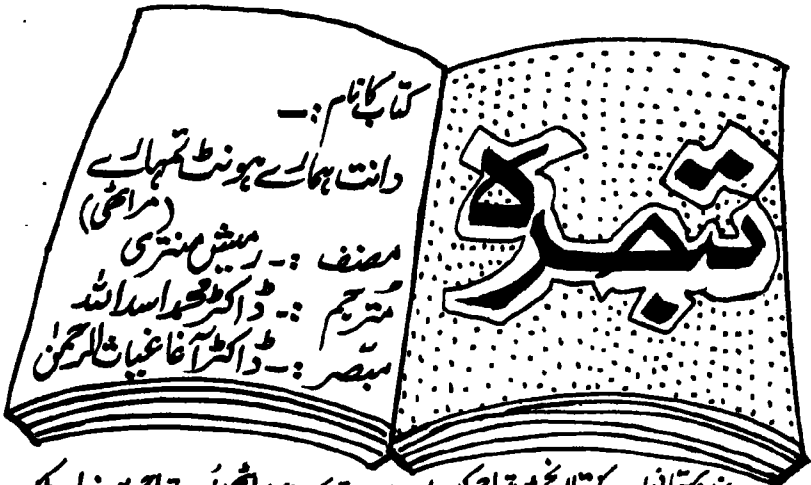 تبصرہ
کتاب کا نام :۔
دانت ہمارے ہونٹ تمہارے
(مراٹھی)
مصنف :۔ رمیش منتری
مترجم :۔ ڈاکٹر محمد اسد اللہ
مبصر :۔ ڈاکٹر آغا غیاث الرحمٰن